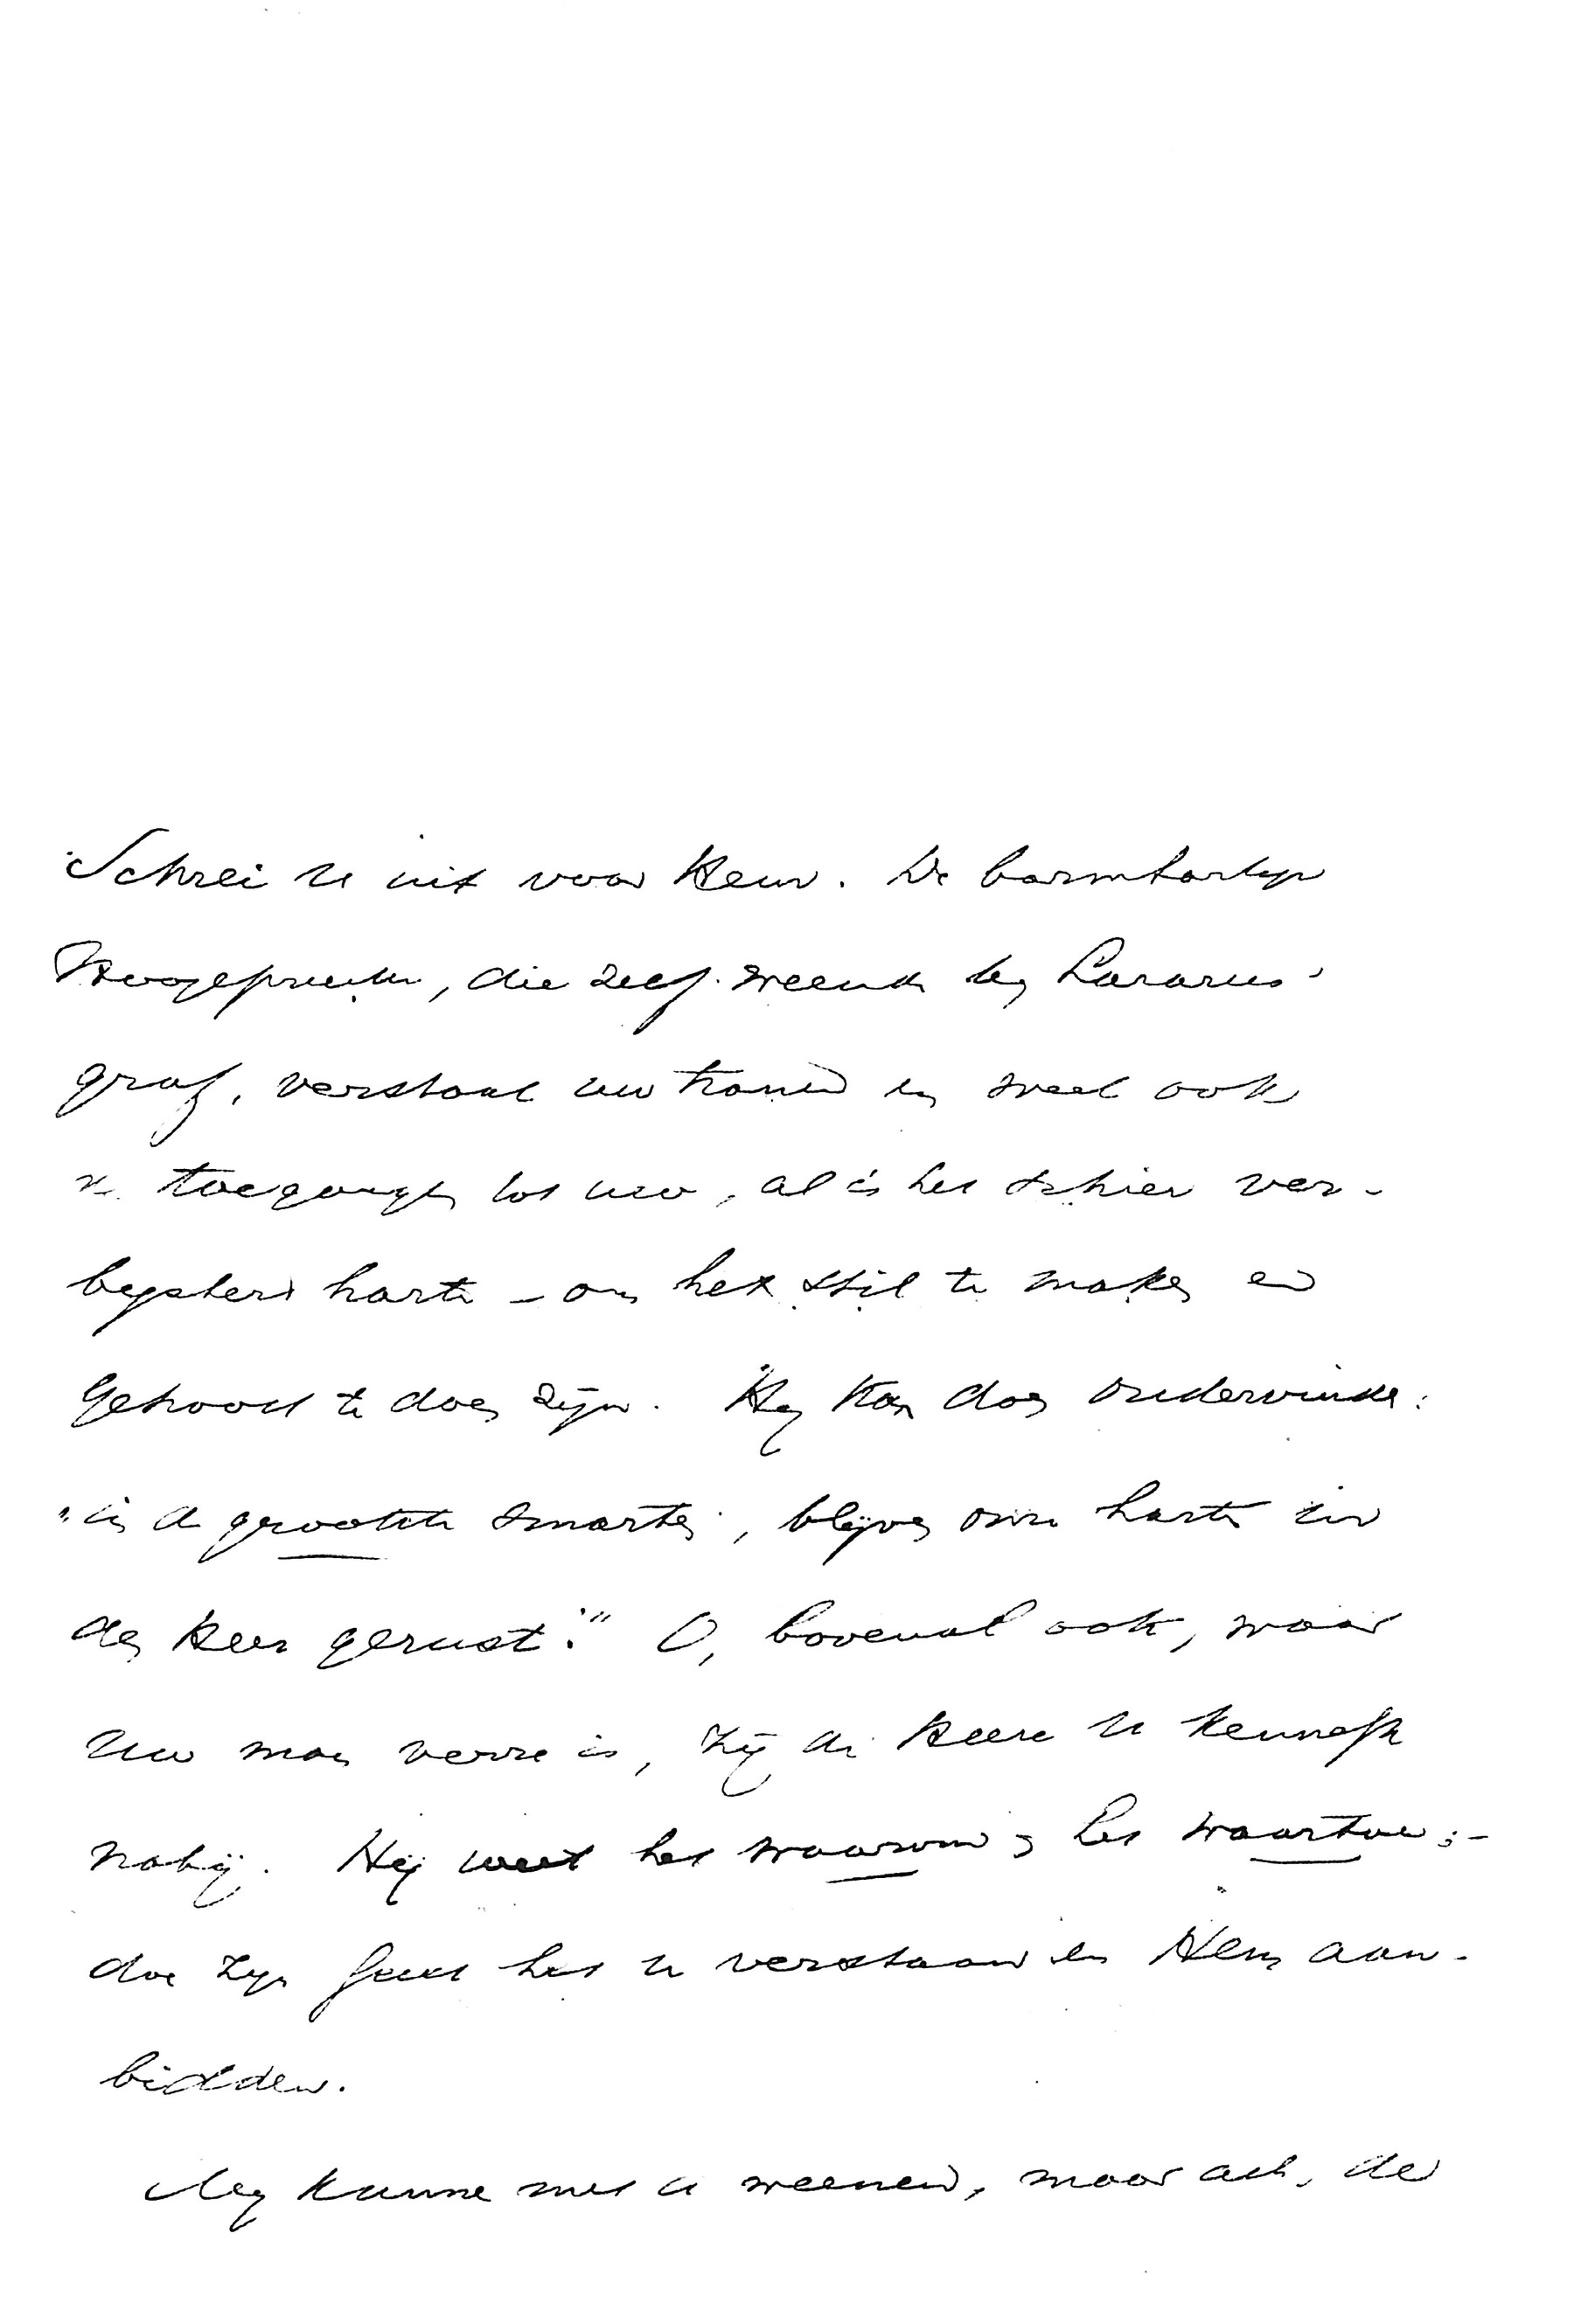 Schrei u uit voor Hem. De barmhartige
Hoogepriester, die zelf weende bij Lazarus'
graf, verstaat uw tranen en weet ook
de toegangen tot uw, al is het schier ver-
bijsterd harte – om het stil te maken en
getroost te doen zijn. Hij kan doen ondervinden:
"in de grootste smarten, blijven onze harten in
den Heer gerust." O, bovenal ook, waar
uw man verre is, zij de Heere u kennelijk
nabij. Hij weet het waarom en het waartoe; -
doe Zijn Geest het u verstaan en Hem aan-
bidden.
Wij kunnen met u weenen, maar ach, de